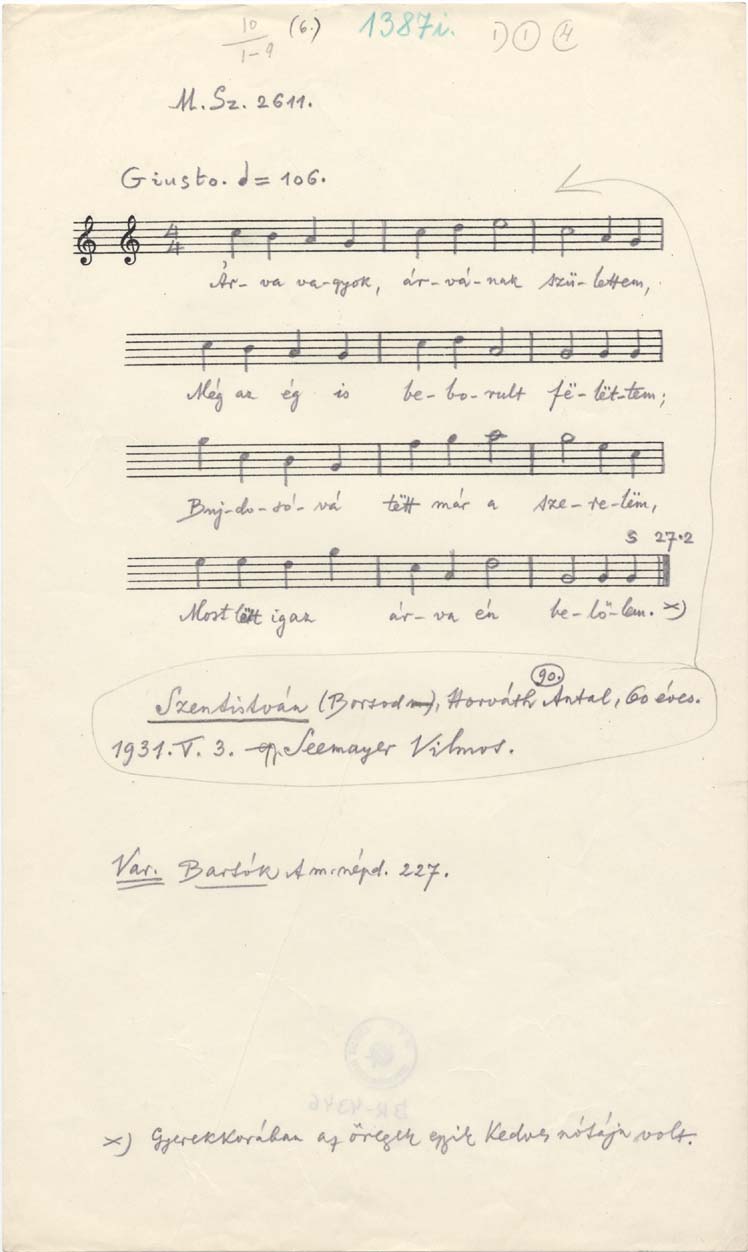 10 (6.) 1387i. 1) 1 4
1-9
M. Sz. 2611.
Giusto. = 106.
4
4
Ár- va va-gyok, ár-vá-nak szü-lettem,
Még az ég is be-bo-rult fë-lët-tem;
Buj-do-só-vá tëtt már a sze-re-lëm,
S 27.2
Most lëtt igaz ár-va én be-lő-lem. x)
Szentistván (Borsod m), Horváth Antal, 60 éves.
90.
1931. V. 3. Seemayer Vilmos.
Var. Bartók A m. népd. 227.
BR-4346
x) Gyerekkorában az öregek egyik kedves nótája volt.